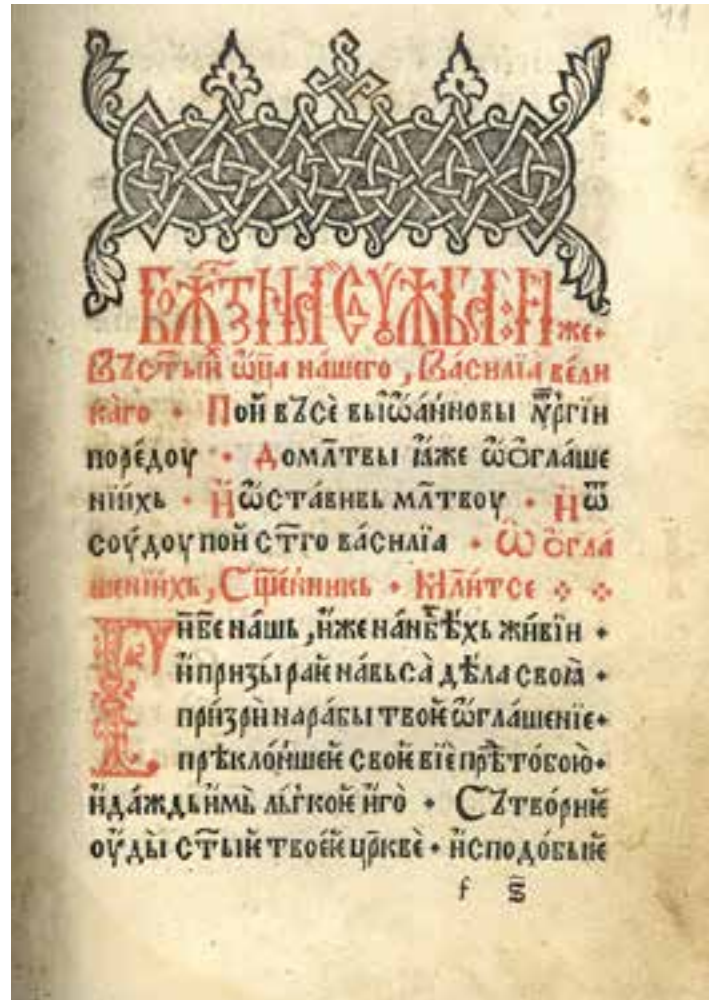 41
Бж҃т́ვ́наꙗ Слꙋжба: И́же
Въст҃ы́й ѡ҆ц҃а на́шего, Васи́лїа вели
ка́го · Пой въсѐ вы̀ їѡа́нновы лꙋ́ргїи
поре́доу · Домл҃твы ꙗ҆́же ѡ҆ѻ҆гла́ше
нїи́хь · И҆ ѡ҆ста́вивь мл҃твоу · И҆ ѿ
соу́доу пой ст҃го васи́лїа · Ѡ҆ ѻ҆гла
ше́нїихь, Сщ҃е́нникь · Мл҃и́тсе
Ги҃ бж҃е на́шь, и҆́же на нб҃сѣ́хь живїи ·
И҆ призы́раѥ на вьса̀ дѣ́ла своꙗ̀ ·
при́зри̑ на рабы̀ твоѥ ѡ҆глаше́нїе ·
прѣкло́ншеѥ своѥ вїѐ прѣ́ тобо́ю ·
И҆ да́ждь и҆мь̀ ль́гкоѥ и҆́го · Сътвори́ѥ
оу҆́ды̀ ст҃ы́ѥ твоѥ́ѥ цр҃кве̑ · и҆ сподо́бы ѥ